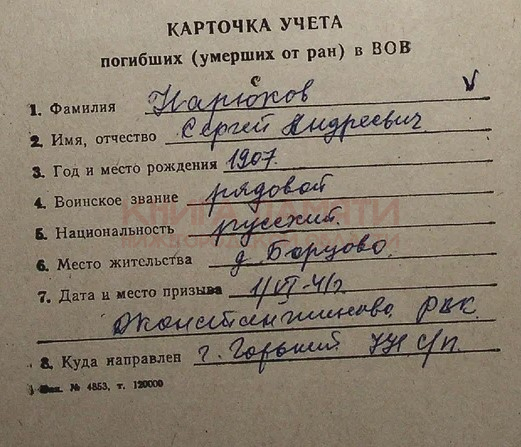 КАРТОЧКА УЧЕТА
погибших (умерших от ран) в ВОВ
с
1. Фамилия Нарюков V
2. Имя, отчество Сергей Андреевич
3. Год и место рождения 1907.
4. Воинское звание рядовой
КНИГА ПАМЯТИ
5. Национальность русский.
НИЖЕГОРОДСКОЙ ОБЛАСТИ
6. Место жительства д. Борцово.
7. Дата и место призыва 1/VI-41г.
Дконстантиново РВК.
8. Куда направлен г. Горький С/П.
Зак. № 4853, т. 120000